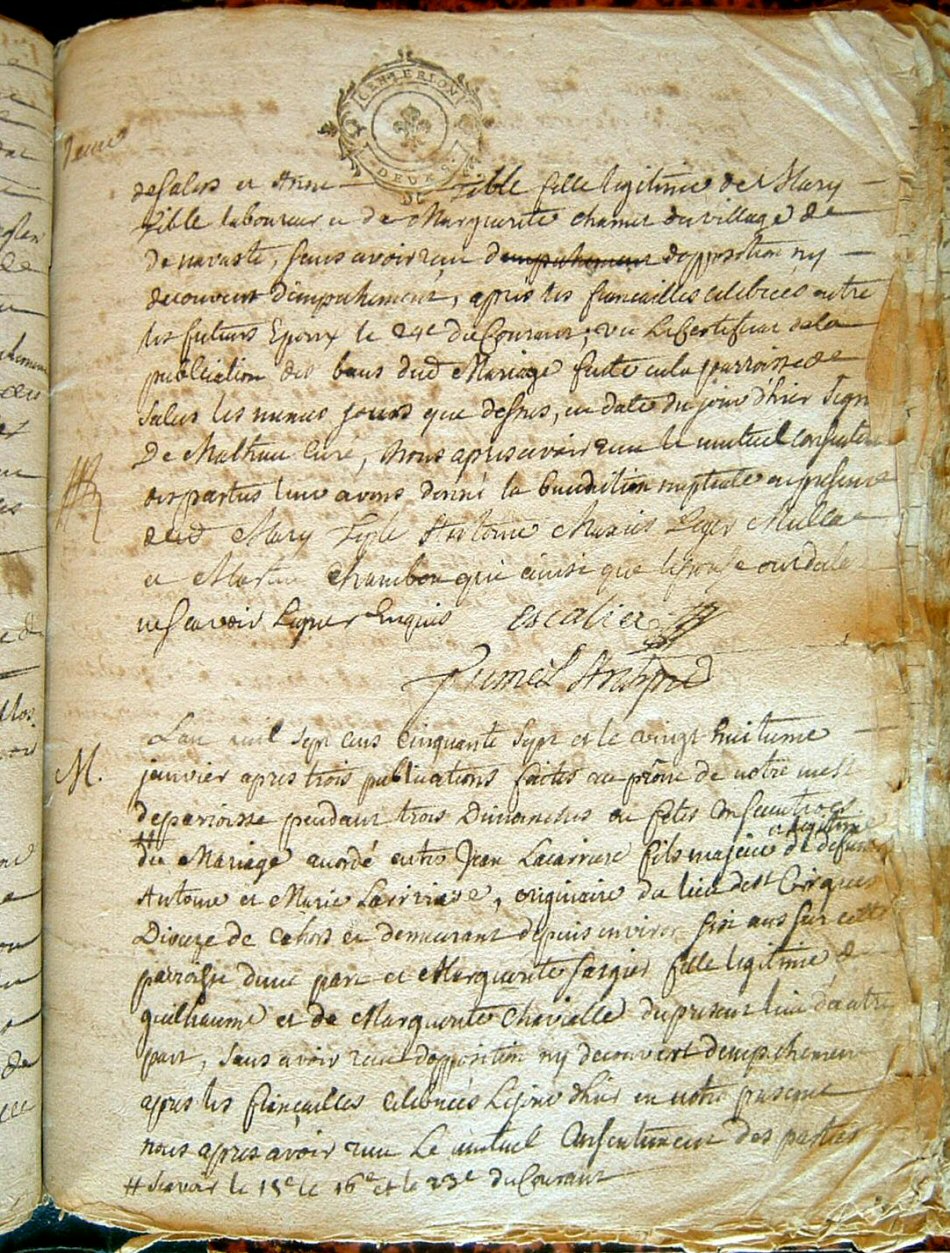 GENERION
DEUX
de Salers et Anne Tible fille legitime de Mary
Tible laboureur et de Marguerite Chamet du village de
de navaste, sans avoir reçu dempechement d'opposition ny
decouvert d'empechement, apres les fiancailles celebrées entre
les futurs Epoux le 24e du Courant, vu Le Certificat de la
publication des bans dud Mariage faite en la parroisse de
Salers les memes jours que dessus, en date du jour d'hier Signé
De Mathieu Curé, Nous apres avoir reçu le mutuel consentement
des parties leur avons donné la benediction nuptiale en presence
dud Mary Antoine Leger
et Martin Chambon qui ainsi que l'epouse ont declaré
ne Scavoir Signer Enquis Escalier
L'an mil sept cens cinquante Sept et le vingt huitieme
M. janvier apres trois publications faites au prône de notre messe
de paroisse pendant trois Dimanches ou fêtes Consecutives #
du Mariage accordé entre Jean Lacarriere fils majeur et legitime de defunt
Antoine et Marie Larriviere, originaire du lieu de st Cirgues
Dioceze de Cahors et demeurant depuis environ six ans sur cette
parroisse d'une part et Marguerite fille legitime de
guilhaume et de Marguerite Chavialle du present lieu d'autre
part, Sans avoir reçu d'opposition ny decouvert d'empechement
apres les fiançailles celebrées Le jour d'hier en notre presence
nous apres avoir reçu Le mutuel Consentement des parties
# Scavoir le 15e le 16e et le 23e du Courant